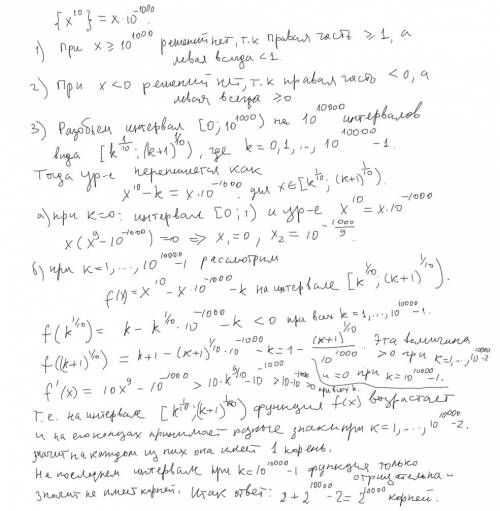 {x^10} = x·10^-1000.
1) При x ≥ 10^1000 решений нет, т.к правая часть ≥ 1, а
левая всегда < 1.
2) При x < 0 решений нет, т.к правая часть < 0, а
левая всегда ≥ 0
3) Разобьем интервал [0; 10^1000) на 10^10000 интервалов
вида [k^1/10; (k+1)^1/10), где k = 0, 1, ..., 10^10000 - 1.
Тогда ур-е перепишется как
x^10 - k = x·10^-1000 для x∈[k^1/10; (k+1)^1/10).
а) при k=0: интервал [0; 1) и ур-е x^10 = x·10^-1000
x(x^9 - 10^-1000) = 0 => x₁ = 0, x₂ = 10^-1000/9.
б) при k = 1, ..., 10^10000 - 1 рассмотрим
f(x) = x^10 - x·10^-1000 - k на интервале [k^1/10; (k+1)^1/10).
f(k^1/10) = k - k^1/10·10^-1000 - k < 0 при всех k = 1, ..., 10^10000 - 1.
f((k+1)^1/10) = k+1 - (k+1)^1/10·10^-1000 - k = 1 - (k+1)^1/10/10^1000. Эта величина > 0 при k=1, ..., 10^10000 - 2
и = 0 при k = 10^10000 - 1.
f'(x) = 10x^9 - 10^-1000 > 10·k^9/10 - 10^-1000 > 10 - 10^-1000 > 0 при всех k.
Т.е. на интервале [k^1/10; (k+1)^1/10) функция f(x) возрастает
и на его концах принимает разные знаки при k = 1, ..., 10^10000 - 2.
значит на каждом из них она имеет 1 корень.
На последнем интервале при k = 10^10000 - 1 функция только
отрицательна -
значит не имеет корней. Итак ответ: 2 + 2^10000 - 2 = 2^10000 корней.